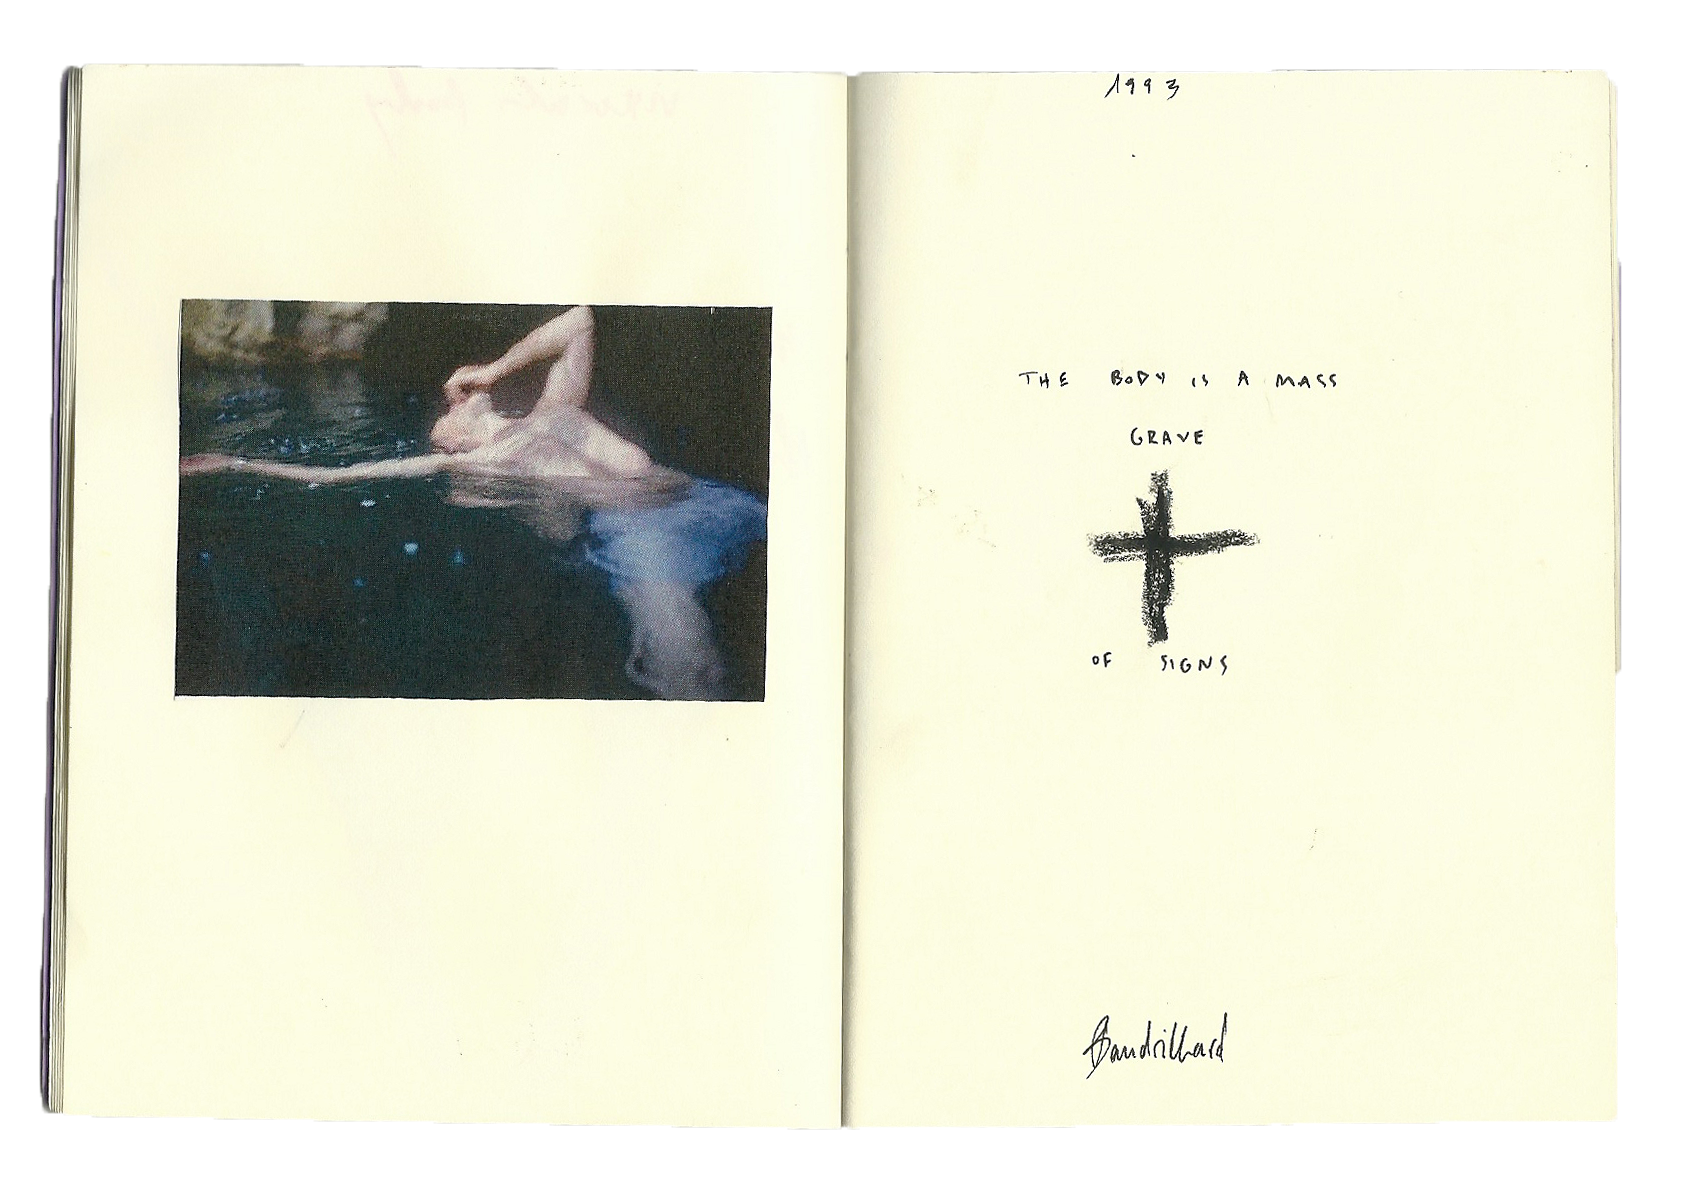 1993
THE BODY IS A MASS
GRAVE
OF SIGNS
Baudrillard